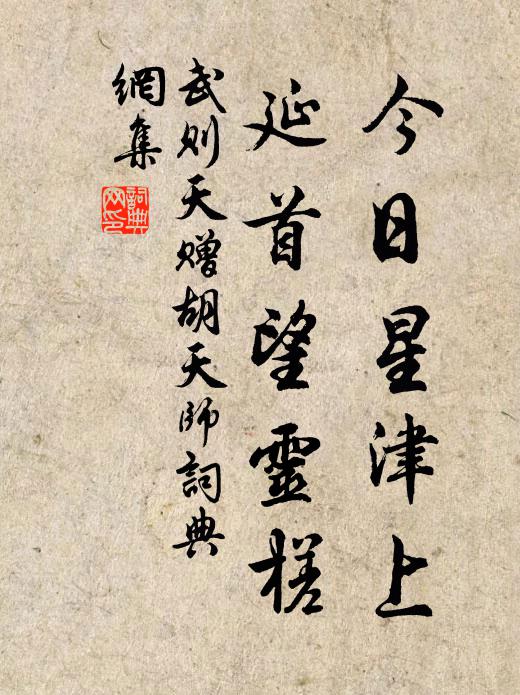 今日星津上
延首望靈槎
武则天赠胡天师詞典
網集
詞典網印